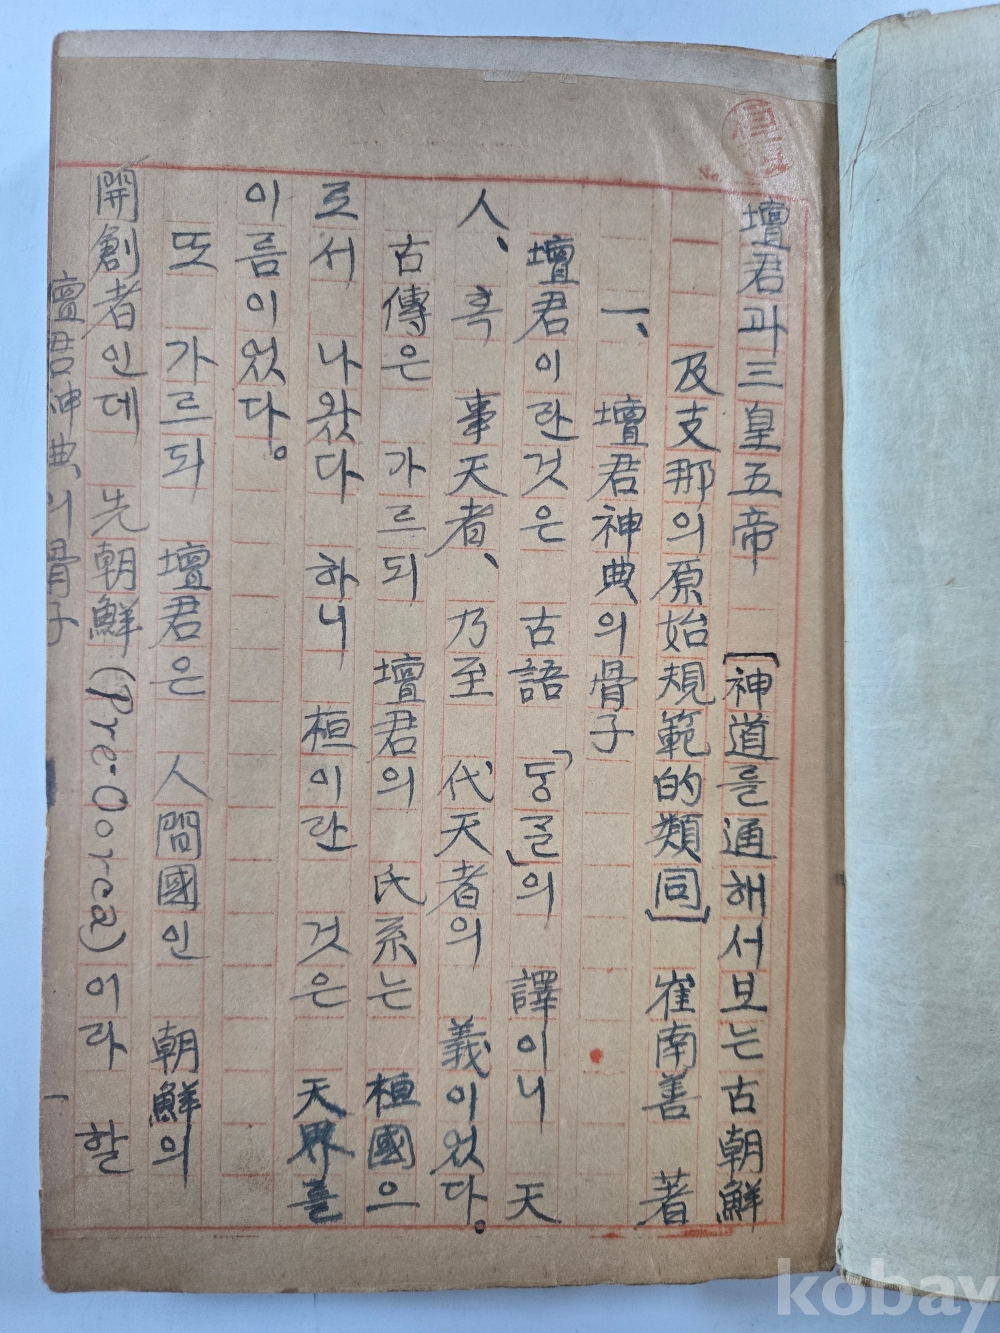 壇君과三皇五帝 [神道를通해서보는古朝鮮
及支那의原始規範的類同] 崔南善 著
一、 壇君神典의骨子
壇君이란것은 古語「둥글」의 譯이니 天
人、혹 事天者、乃至 代天者의 義이었다。
古傳은 가르되 壇君의 氏系는 桓國으
로서 나왔다 하니 桓이란 것은 天界를
이름이었다。
또 가르되 壇君은 人間國인 朝鮮의
開創者인데 先朝鮮(Pre-Oorea)이라 할
壇君神典의骨子 一
No.
kobay